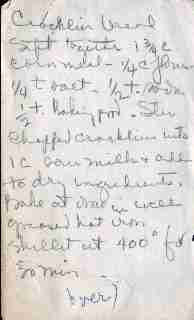 Cracklin Bread
Sift twice 1 3/4 c
corn meal - 1/4 c flour
1/4 t salt - 1/2 t. soda
1/2 t. baking pod. Stir
chopped cracklins into
1 c sour milk & add
to dry ingredients.
Bake at once in well
greased hot iron
skillet at 400° for
50 min
(over)